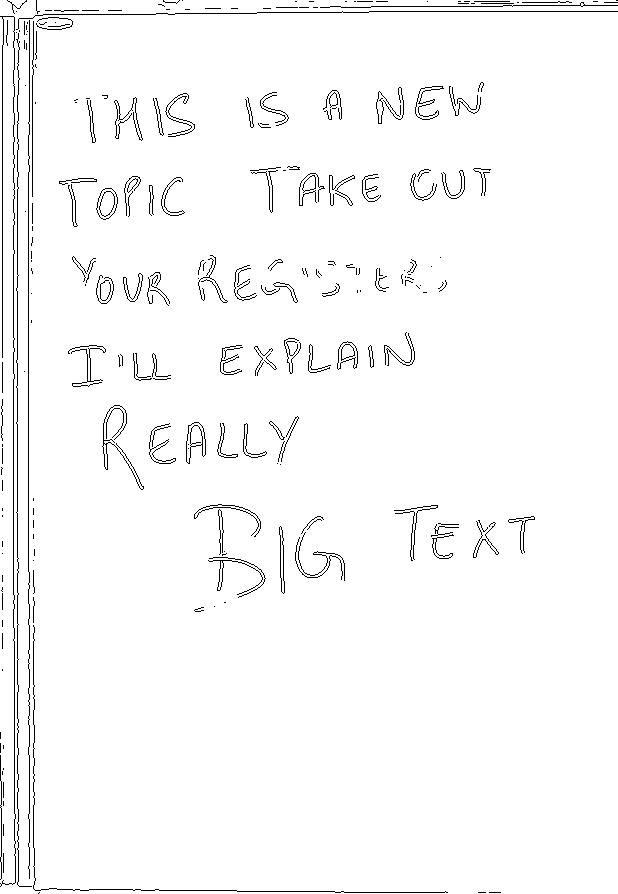 THIS IS A NEW
TOPIC TAKE OUT
YOUR REGISTERS
I'LL EXPLAIN
REALLY
BIG TEXT